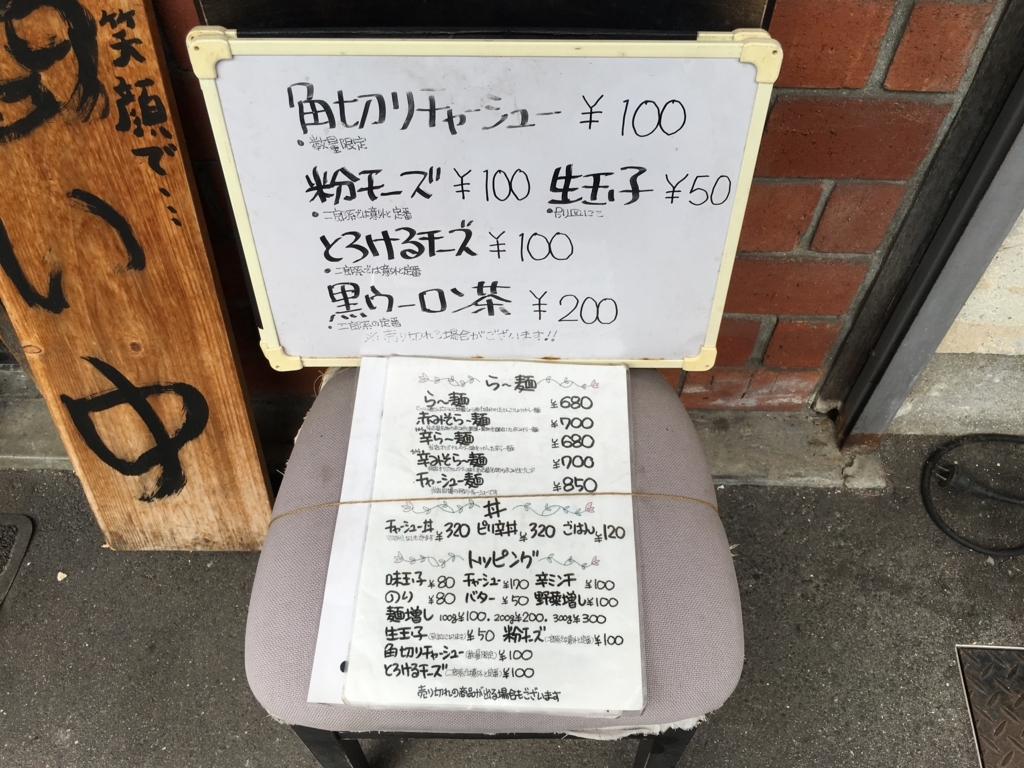 笑顔で…
い中
角切りチャーシュー ¥100
•数量限定
粉チーズ ¥100 生玉子 ¥50
とろけるチーズ ¥100
黒ウーロン茶 ¥200
•二郎系の定番
※売り切れる場合がございます!!
ら〜麺
ら〜麺 ¥680
赤みそら〜麺 ¥700
辛ら〜麺 ¥680
辛みそら〜麺 ¥700
チャーシュー麺 ¥850
丼
チャーシュー丼 ¥320 ピリ辛丼 ¥320 ごはん ¥120
トッピング
味玉子 ¥80 チャーシュー ¥170 辛ミンチ ¥100
のり ¥80 バター ¥50 野菜増し ¥100
麺増し 100g¥100. 200g¥200. 300g¥300
生玉子 ¥50 粉チーズ ¥100
角切りチャーシュー(数量限定) ¥100
とろけるチーズ ¥100
売り切れの商品が出る場合もございます